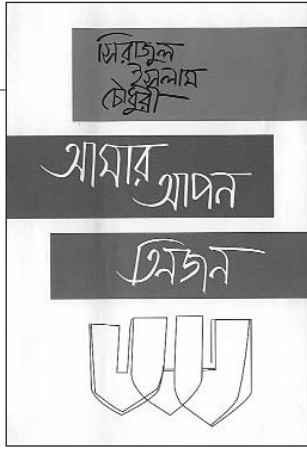 সিরাজুল
ইসলাম
চৌধুরী
আমার
আপন
তিনজন